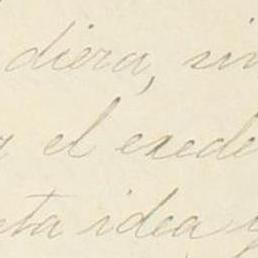 diera, sin
el exede
ta idea y